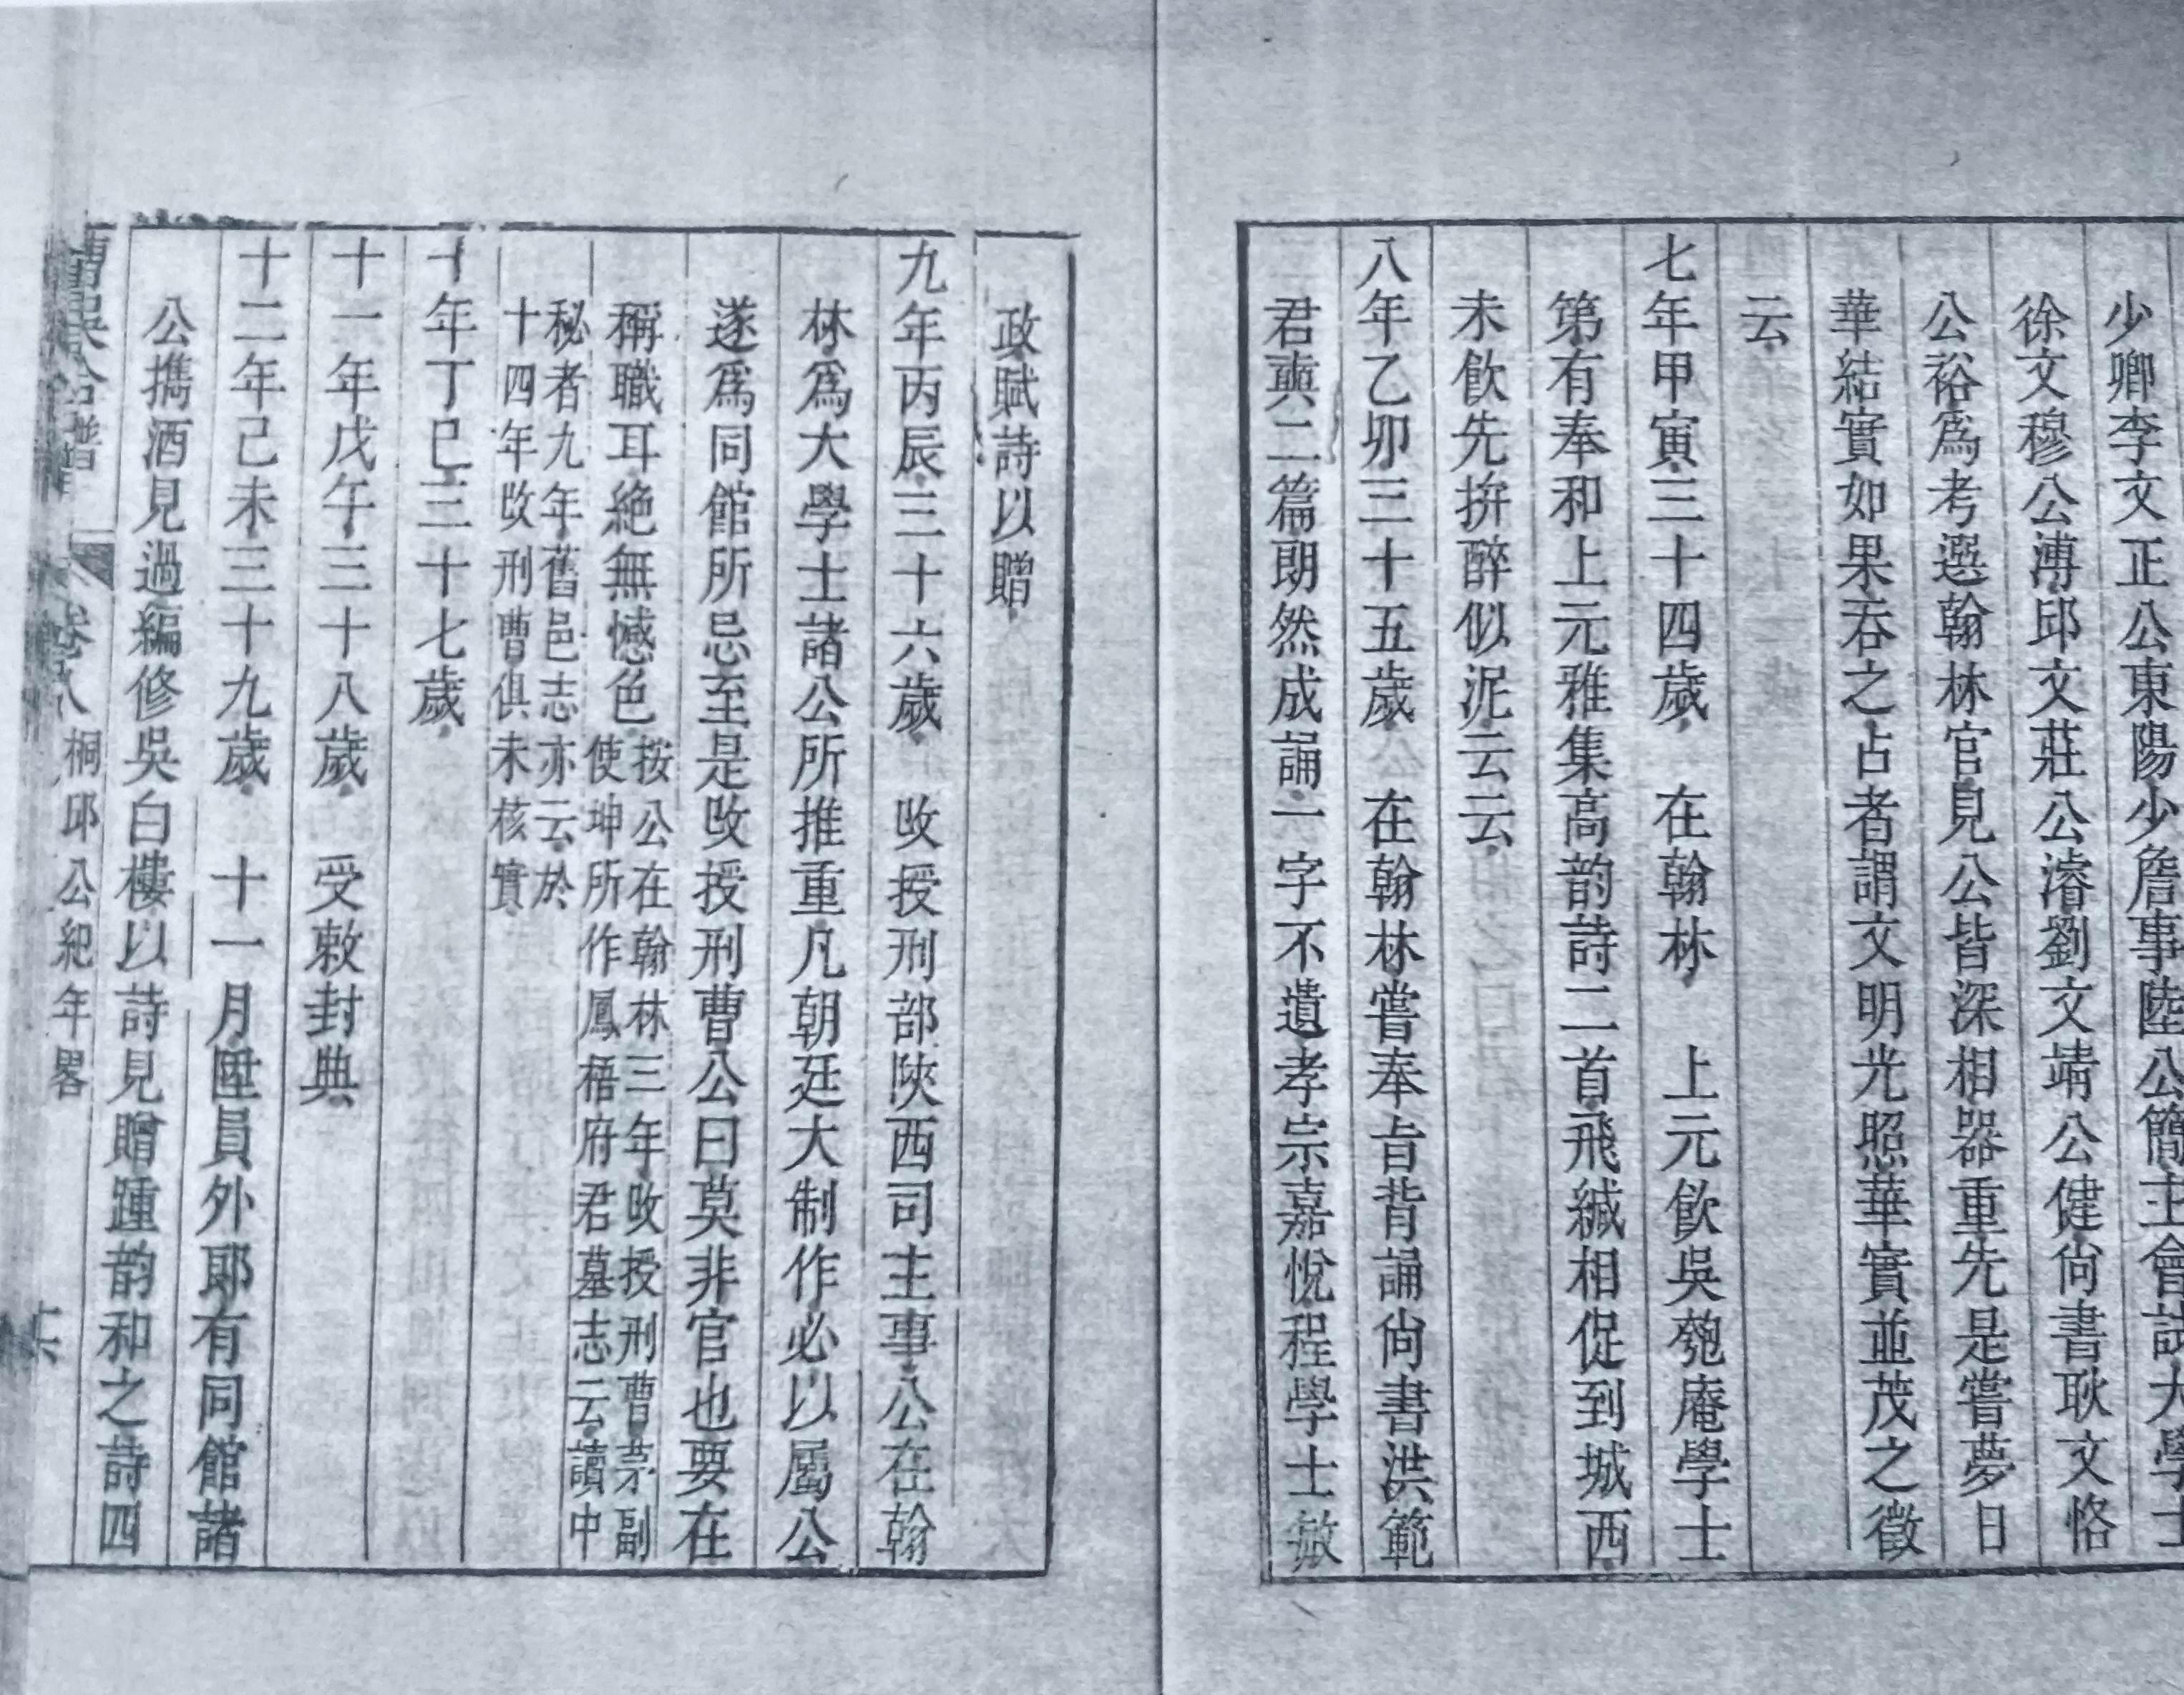 少卿李文正公東陽少詹事陸公簡主會試大學士
徐文穆公溥邱文莊公濬劉文靖公健尙書耿文恪
公裕爲考選翰林官見公皆深相器重先是嘗夢日
華結實如果吞之占者謂文明光照華實並茂之徵
云
七年甲寅三十四歲 在翰林 上元飲吳匏庵學士
第有奉和上元雅集高韵詩二首飛緘相促到城西
未飲先拚醉似泥云云
八年乙卯三十五歲 在翰林嘗奉旨背誦尙書洪範
君奭二篇朗然成誦一字不遺孝宗嘉悅程學士敏
政賦詩以贈
九年丙辰三十六歲 改授刑部陝西司主事公在翰
林爲大學士諸公所推重凡朝廷大制作必以屬公
遂爲同館所忌至是改授刑曹公曰莫非官也要在
稱職耳絕無憾色按公在翰林三年改授刑曹茅副
使坤所作鳳梧府君墓志云讀中
秘者九年舊邑志亦云於
十四年改刑曹俱未核實
十年丁巳三十七歲
十一年戊午三十八歲 受敕封典
十二年己未三十九歲 十一月陞員外郎有同館諸
公攜酒見過編修吳白樓以詩見贈踵韵和之詩四
卷八 桐邱公紀年畧